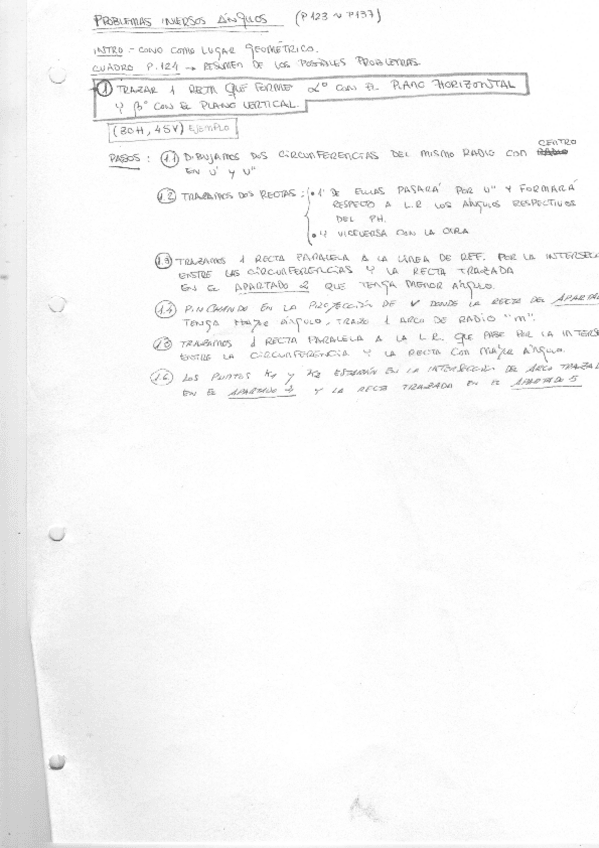 PROBLEMAS INVERSOS ÁNGULOS (P123 ~ P137)
INTRO - CONO COMO LUGAR GEOMÉTRICO.
CUADRO P.124 → RESUMEN DE LOS POSIBLES PROBLEMAS.
① TRAZAR 1 RECTA QUE FORME α° CON EL PLANO HORIZONTAL
Y β° CON EL PLANO VERTICAL.
(30H, 45V) EJEMPLO
PASOS: 1.1 DIBUJAMOS DOS CIRCUNFERENCIAS DEL MISMO RADIO CON CENTRO
EN V' Y V''
1.2 TRAZAMOS DOS RECTAS: • 1 DE ELLAS PASARÁ POR V'' Y FORMARÁ
RESPECTO A L.R LOS ÁNGULOS RESPECTIVOS
DEL PH.
• Y VICEVERSA CON LA OTRA.
1.3 TRAZAMOS 1 RECTA PARALELA A LA LÍNEA DE REF. POR LA INTERSEC
ENTRE LAS CIRCUNFERENCIAS Y LA RECTA TRAZADA
EN EL APARTADO 2 QUE TENGA MENOR ÁNGULO.
1.4 PINCHANDO EN LA PROYECCIÓN DE V DONDE LA RECTA DEL APARTA
TENGA MAYOR ÁNGULO, TRAZO 1 ARCO DE RADIO "m".
1.5 TRAZAMOS 1 RECTA PARALELA A LA L.R. QUE PASE POR LA INTERSE
ENTRE LA CIRCUNFERENCIA Y LA RECTA CON MAYOR ÁNGULO.
1.6 LOS PUNTOS K1 Y K2 ESTARÁN EN LA INTERSECCIÓN DEL ARCO TRAZA
EN EL APARTADO 4 Y LA RECTA TRAZADA EN EL APARTADO 5